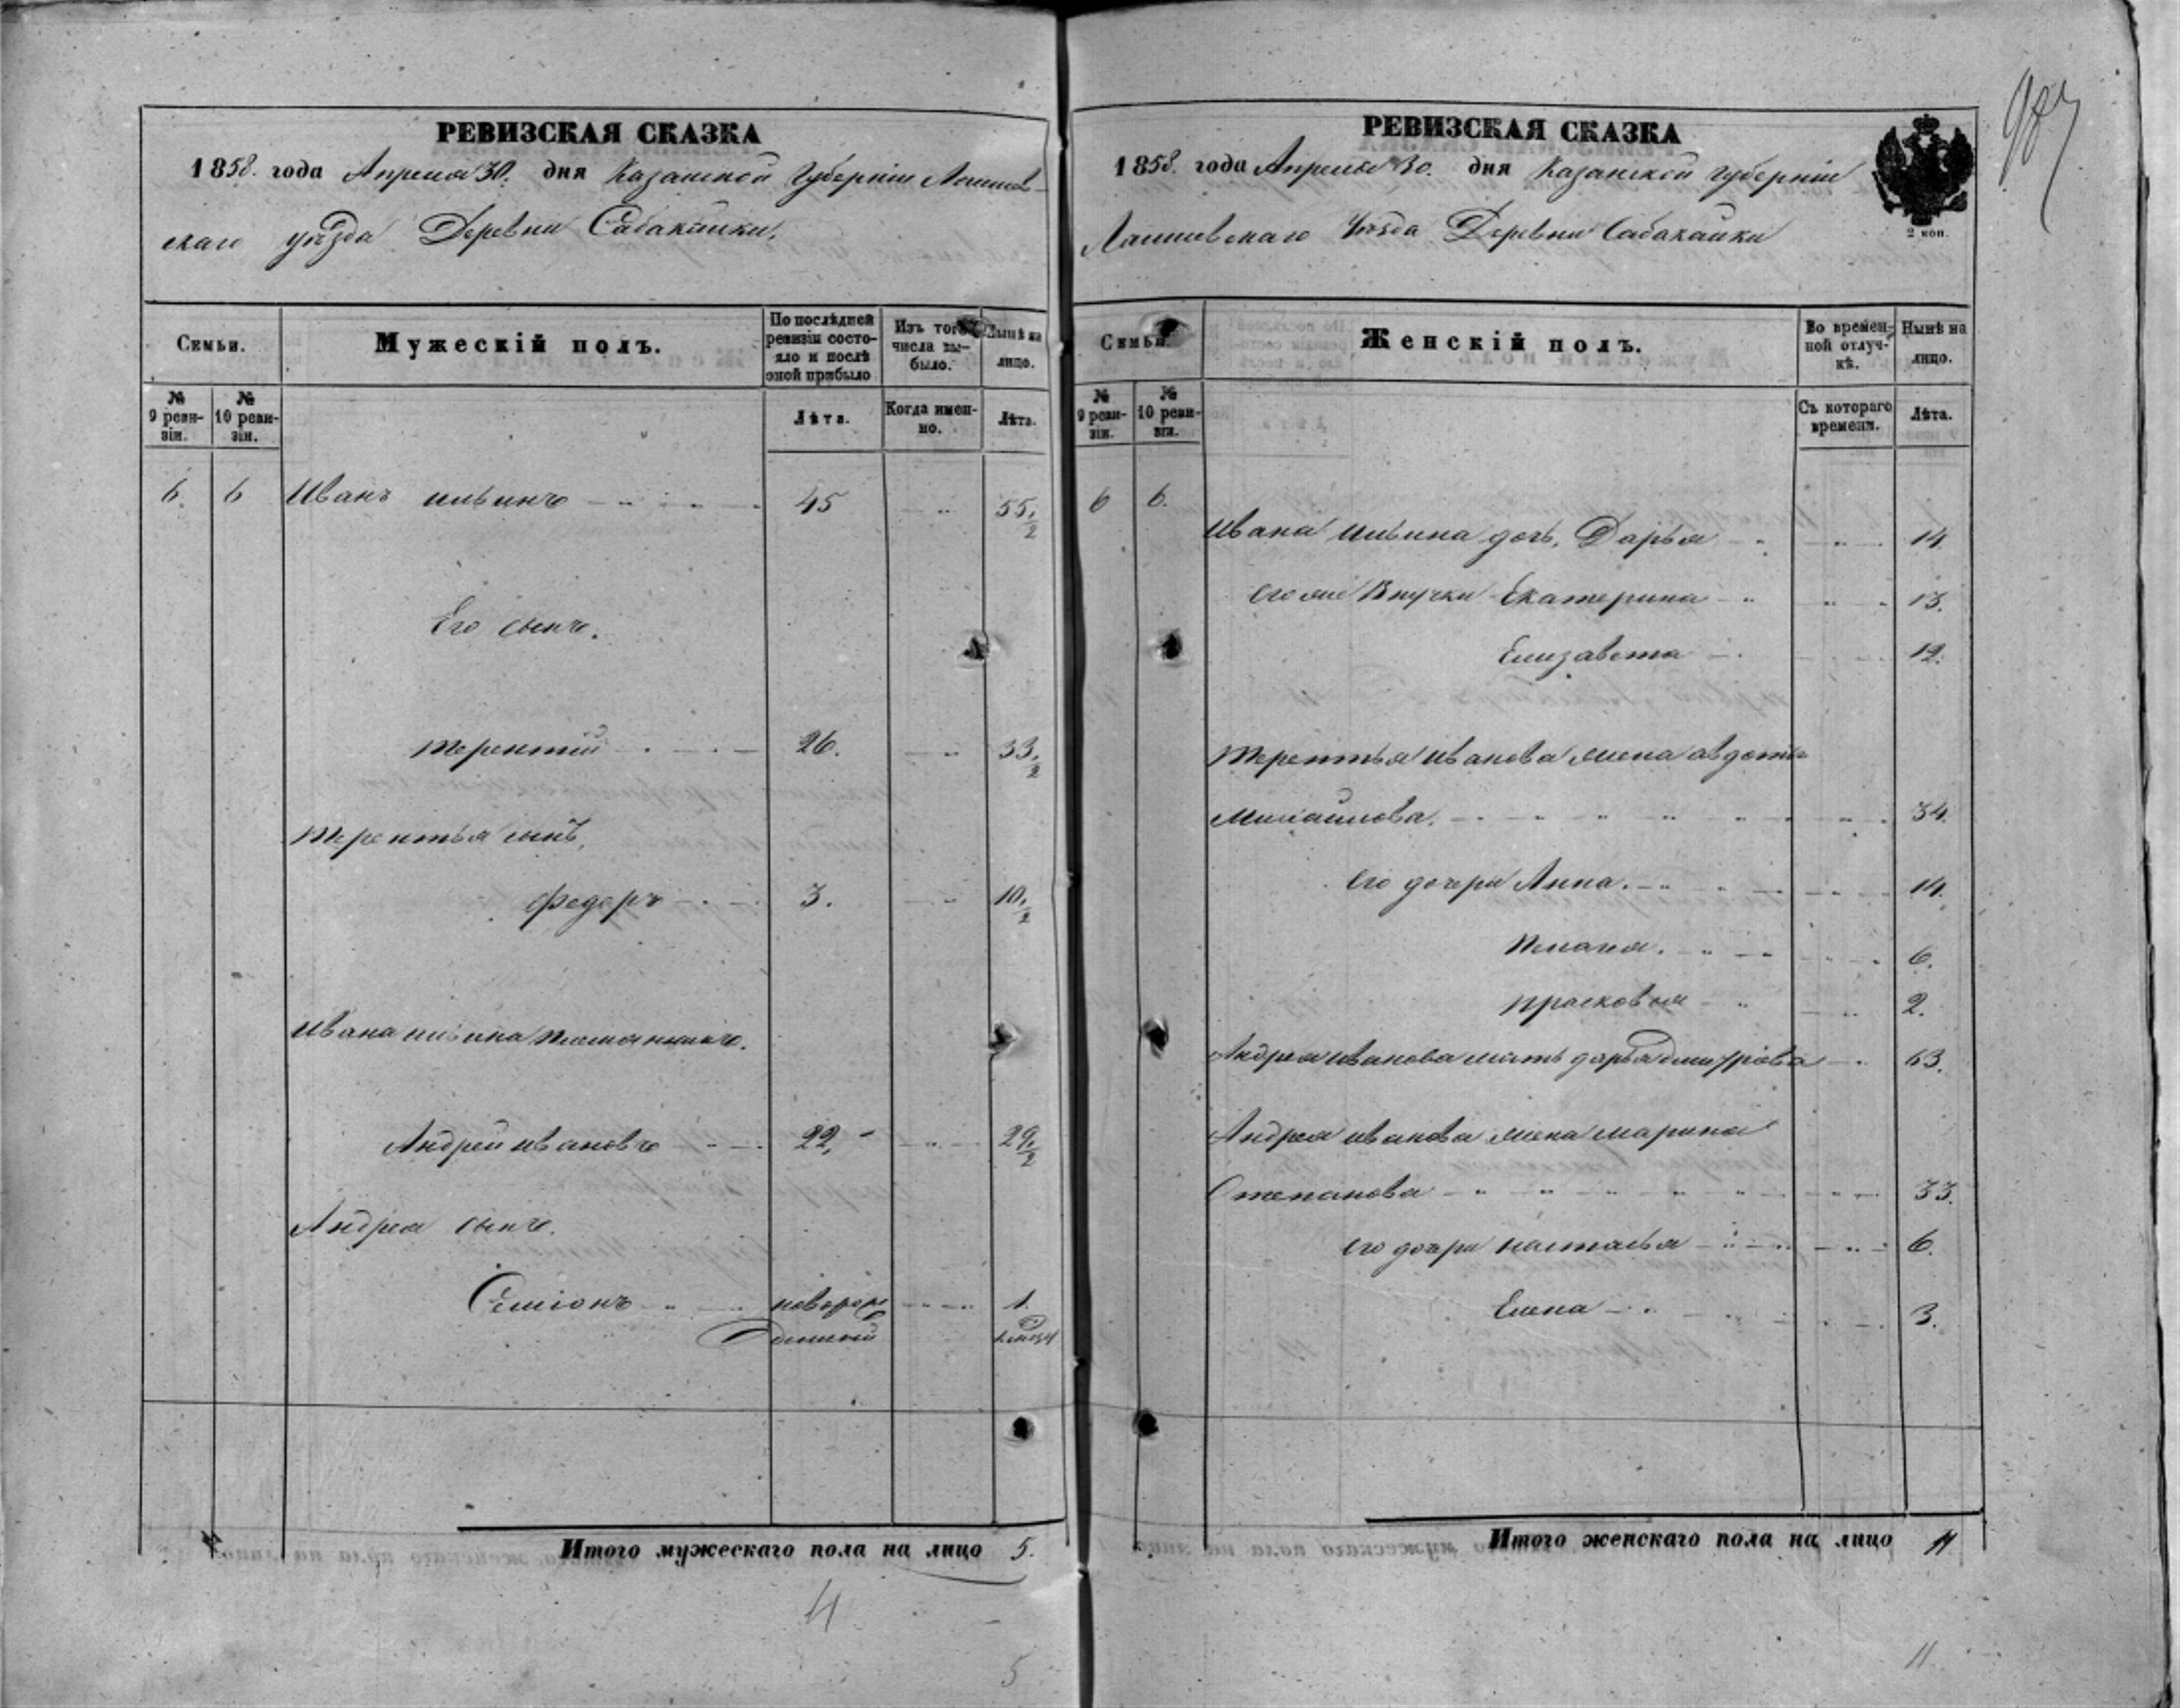 РЕВИЗСКАЯ СКАЗКА
1858. года Апреля 30. дня Казанской Губерніи Лаишев-
скаго уѣзда Деревни Сабакайки,
Семьи.
Мужескій полъ.
По послѣдней ревизіи состояло и послѣ оной прибыло
Изъ того числа выбыло.
Нынѣ на лицо.
№ 9 ревизіи.
№ 10 ревизіи.
Лѣта.
Когда именно.
Лѣта.
6. 6 Иванъ ильинъ 45 55 1/2
Его сынъ.
терентій 26. 33 1/2
терентья сынъ,
федоръ 3. 10 1/2
Ивана ильина племянникъ.
Андрей ивановъ 22, 29 1/2
Андрея сынъ.
Семіонъ новорож 1.
денный
Итого мужескаго пола на лицо 5.
4
5
РЕВИЗСКАЯ СКАЗКА
1858. года Апреля 30. дня Казанской губерніи
Лаишевскаго Уѣзда Деревни Сабакайки
2 коп.
Семьи.
Женскій полъ.
Во временной отлучкѣ.
Нынѣ на лицо.
№ 9 ревизіи.
№ 10 ревизіи.
Съ котораго времени.
Лѣта.
6 6.
Ивана ильина дочь, Дарья 14.
его же Внучки Екатерина 13.
Елизавета 12.
терентья иванова жена авдотья
Михайлова. 34.
его дочери Анна. 14.
Пелагея. 6.
прасковья 2.
Андрея иванова мать дарья дмитріева 63.
Андрея иванова жена марина
Степанова 33.
его дочери настасья 6.
Елена 3.
Итого женскаго пола на лицо 11
11